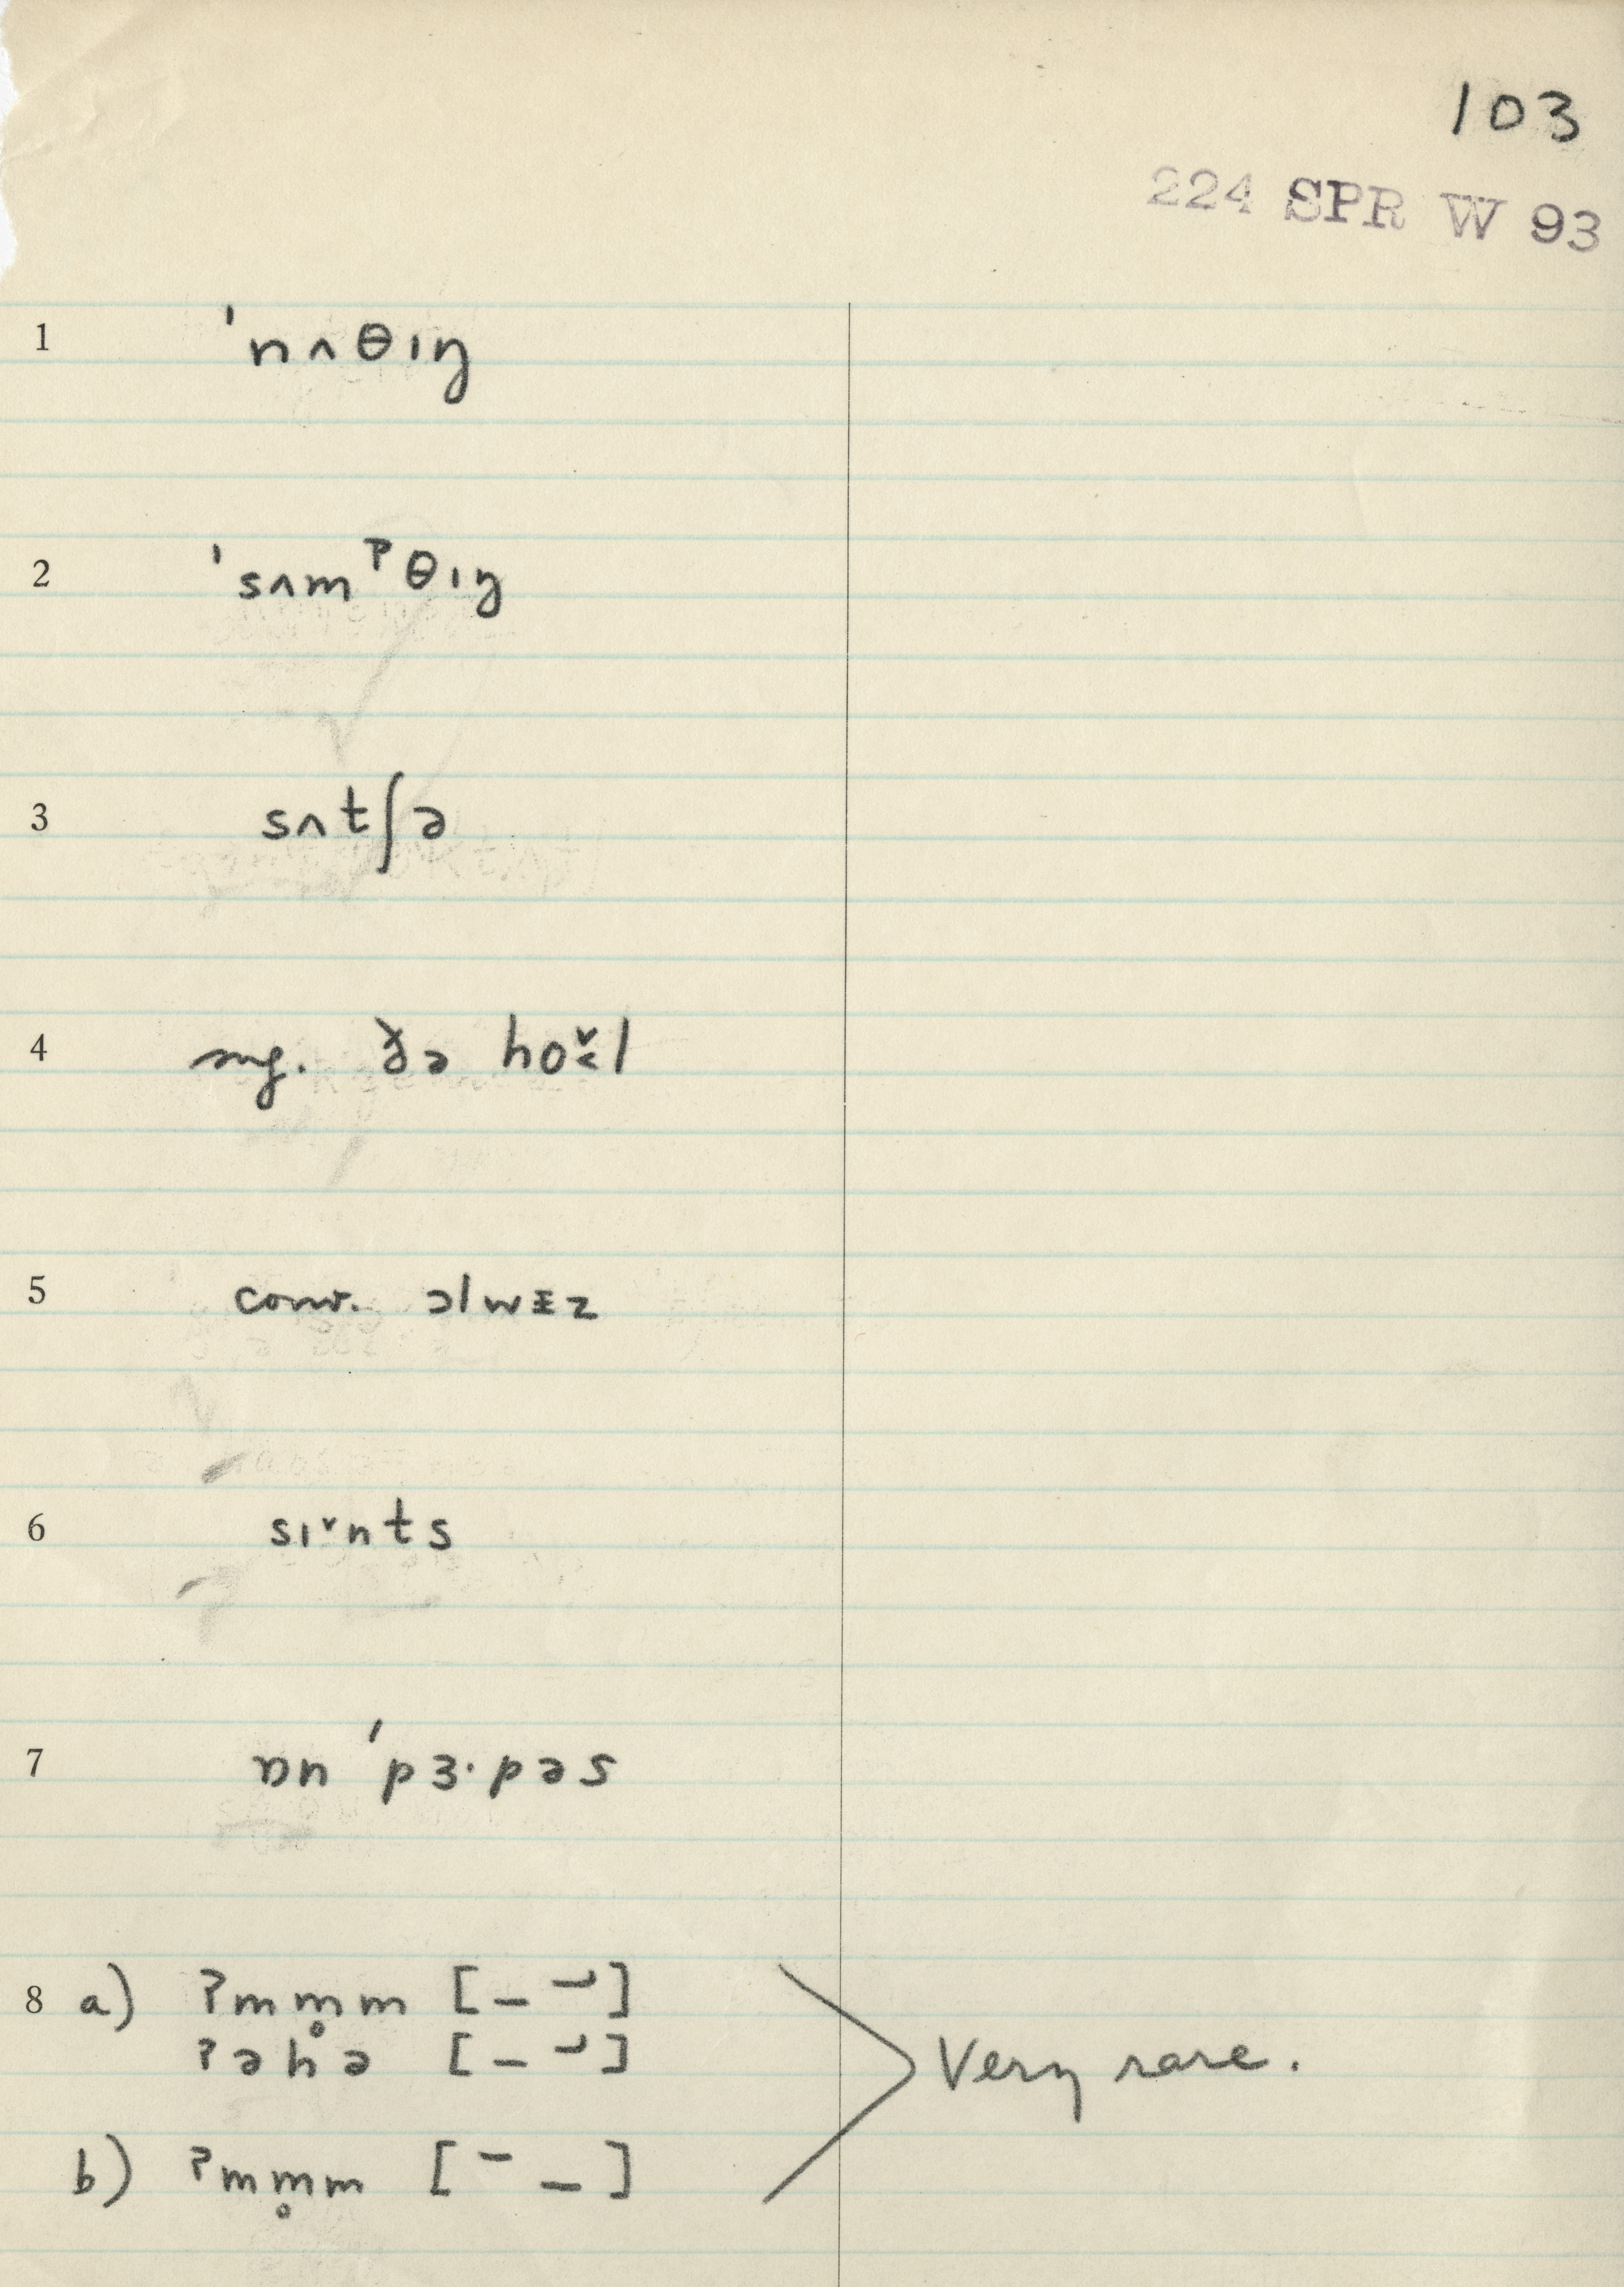 103
224 SPR W 93
1 ˈnʌθɪŋ
2 ˈsʌmˀθɪŋ
3 sʌtʃə
4 sng. ðə ho˅˂l
5 conv. ɔlwɪ̵z
6 sɪ˅nts
7 ɒn ˈpɜ·pəs
8 a) ʔmm̥m [– –╯]
ʔəhə [– –╯]
Very rare.
b) ʔmm̥m [¯ –]